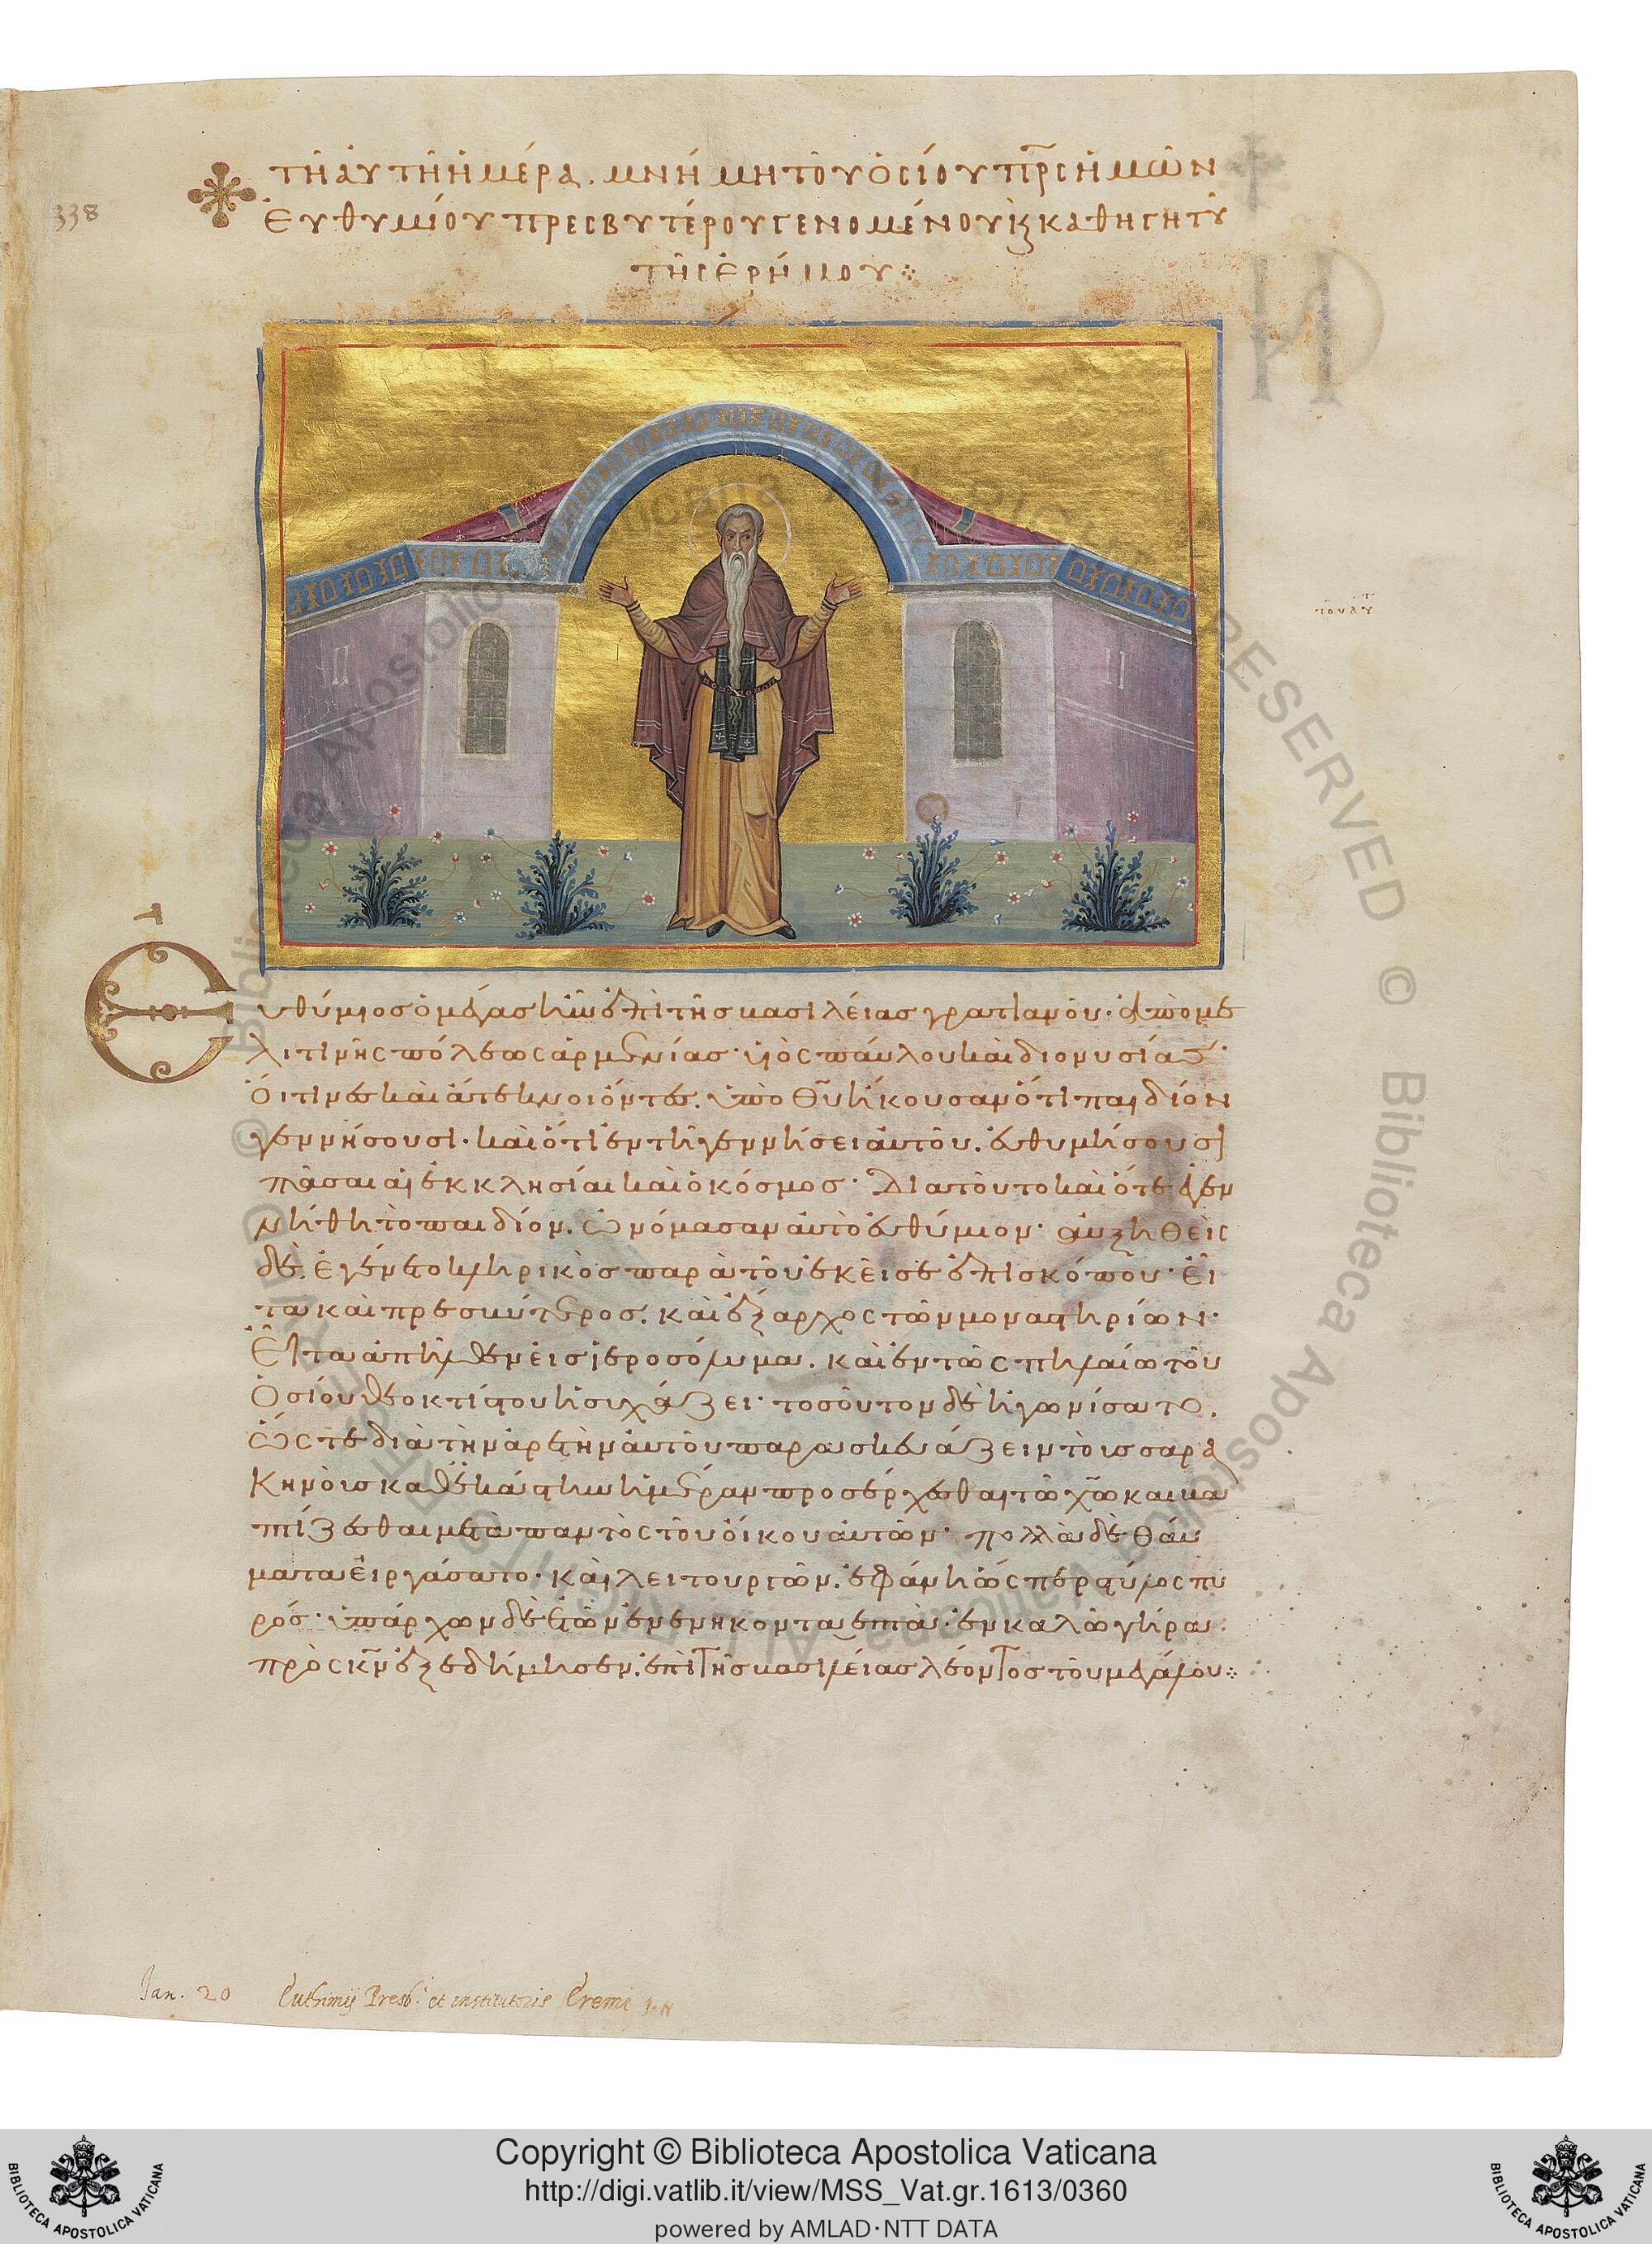 338
τῇ αὐτῇ ἡμέρα. μνήμη τοῦ ὁσίου πρς ἡμῶν
Εὐθυμίου πρεσβυτέρου γενομένου κ καθηγητοῦ
τῆς ἐρήμου
Εὐθύμιος ὁ μέγας ἦν ἐπὶ τῆς βασιλείας γρατιανοῦ· ἀπὸ με
λιτινῆς πόλεως ἀρμενίας· υἱὸς παύλου καὶ διονυσίας·
Οἵτινες καὶ ἄτεκνοι ὄντες. ὑπὸ Θυ ἤκουσαν ὅτι παιδίον
γεννήσουσι· καὶ ὅτι ἐν τῇ γεννήσει αὐτοῦ. εὐθυμήσουσι
πᾶσαι αἱ ἐκκλησίαι καὶ ὁ κόσμος· Διὰ τοῦτο καὶ ὅτε ἐγεν
νήθη τὸ παιδίον. ὠνόμασαν αὐτὸ εὐθύμιον· αὐξηθεὶς
δὲ. ἐγένετο κληρικὸς παρὰ τοῦ ἐκεῖσε ἐπισκόπου· εἶ
τα καὶ πρεσβύτερος. καὶ ἔξαρχος τῶν μοναστηρίων·
Εἶτα ἀπῆλθεν εἰς ἱεροσόλυμα. καὶ ἐν τῶ σπηλαίω τοῦ
Ὁσίου θεοκτίστου ἡσυχάζει· τοσοῦτον δὲ ἠγωνίσατο.
ὥστε διὰ τὴν ἀρετὴν αὐτοῦ παρασκευάζειν τοὺς σαρα
Κηνοὺς καθεκάστην ἡμέραν προσέρχεσθαι τῶ χω καὶ βα
πτίζεσθαι μετὰ παντὸς τοῦ οἴκου αὐτῶν· πολλὰ δὲ θαύ
ματα εἰργάσατο· καὶ λειτουργῶν. ἐφάνη ὡς περ στύλος πυ
ρός· ὑπάρχων δὲ ἐτῶν ἐνενηκονταεπτὰ. ἐν καλῶ γήρα.
πρὸς κν ἐξεδήμησεν. ἐπὶ τῆς βασιλείας λέοντος τοῦ μεγάλου
Jan. 20 Euthimij Presb. et institutoris Eremi
Copyright © Biblioteca Apostolica Vaticana
http://digi.vatlib.it/view/MSS_Vat.gr.1613/0360
powered by AMLAD·NTT DATA
BIBLIOTECA APOSTOLICA VATICANA
BIBLIOTECA APOSTOLICA VATICANA